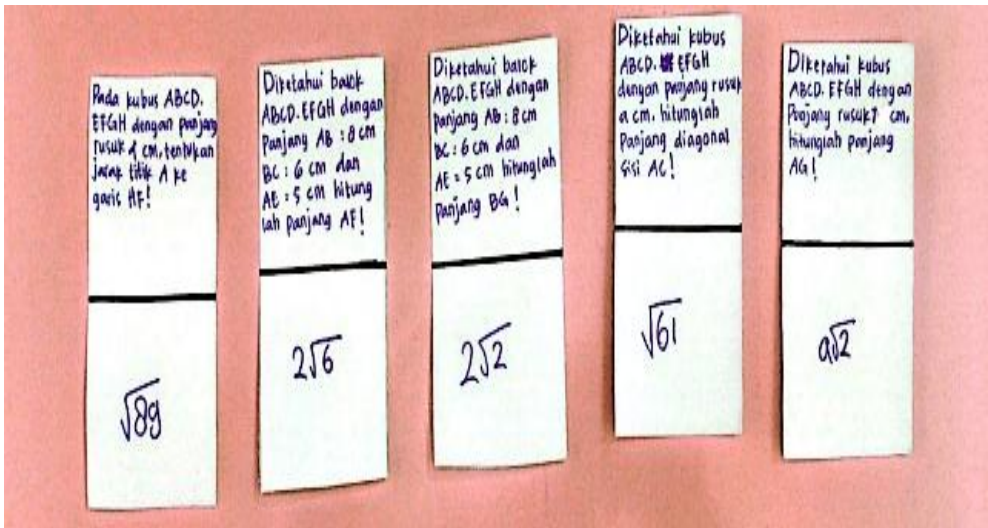 Pada kubus ABCD.
EFGH dengan panjang
rusuk 4 cm, tentukan
jarak titik A ke
garis HF!
√89
Diketahui balok
ABCD.EFGH dengan
Panjang AB : 8 cm
BC : 6 cm dan
AE = 5 cm hitung
lah panjang AF!
2√6
Diketahui balok
ABCD.EFGH dengan
panjang AB : 8 cm
BC : 6 cm dan
AE = 5 cm hitunglah
Panjang BG !
2√2
Diketahui kubus
ABCD. EFGH
dengan panjang rusuk
a cm. hitunglah
Panjang diagonal
sisi AC!
√61
Diketahui kubus
ABCD. EFGH dengan
Panjang rusuk cm.
hitunglah panjang
AG!
a√2